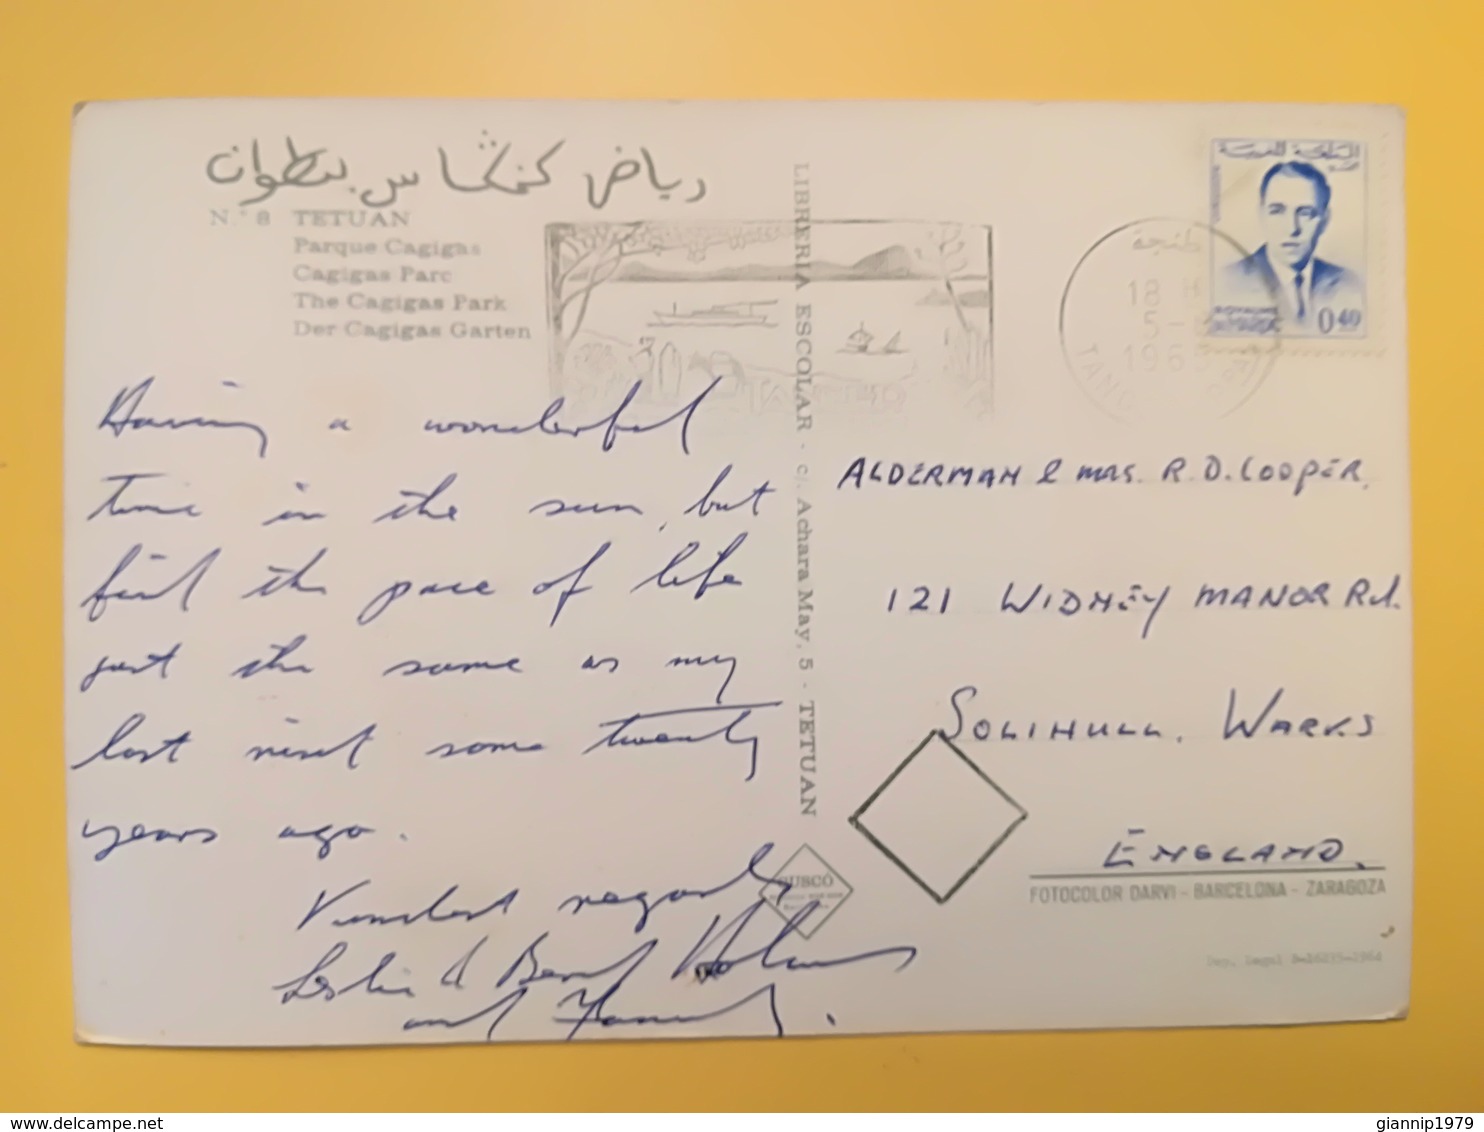 رياض كخكاس بتطوان
N.° 8 TETUAN
Parque Cagigas
Cagigas Parc
The Cagigas Park
Der Cagigas Garten
Having a wonderful
time in the sun, but
find the pace of life
just the same as my
last visit some twenty
years ago.
Kindest regards
Leslie & Beryl Holmes
and Family.
LIBRERIA ESCOLAR - c/. Achara May, 5 - TETUAN
SUBCÓ
المملكة المغربية
ROYAUME
0.40
طنجة
18 H
5-
196
TANGER
ALDERMAN & MRS. R.D. COOPER,
121 WIDNEY MANOR Rd.
SOLIHULL. WARKS
ENGLAND.
FOTOCOLOR DARVI - BARCELONA - ZARAGOZA
Dep. Legal B-16235-1964
delcampe.net
giannip1979